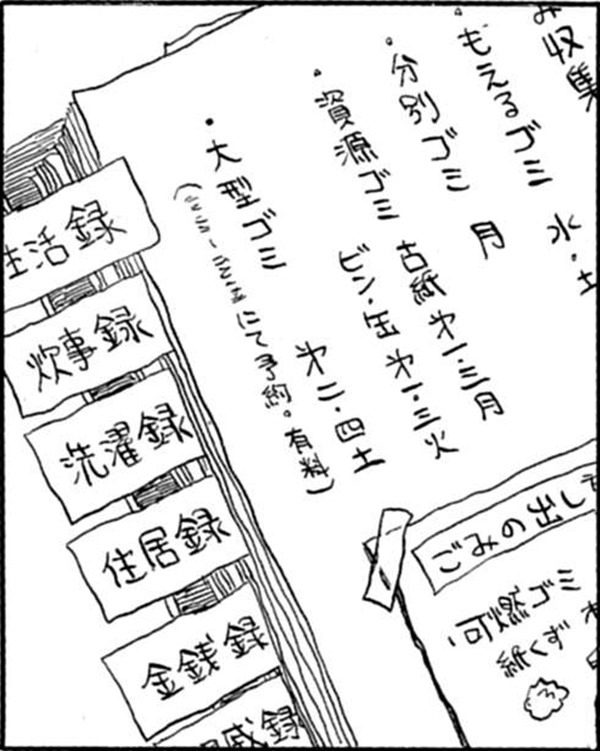 み収集
・もえるゴミ 水・土
・分別ゴミ 月
・資源ゴミ 古紙 第一・三月
ビン・缶 第一・三火
・大型ゴミ 第二・四土
にて予約。有料)
生活録
炊事録
洗濯録
住居録
金銭録
録
ごみの出し
・可燃ゴミ
紙くず